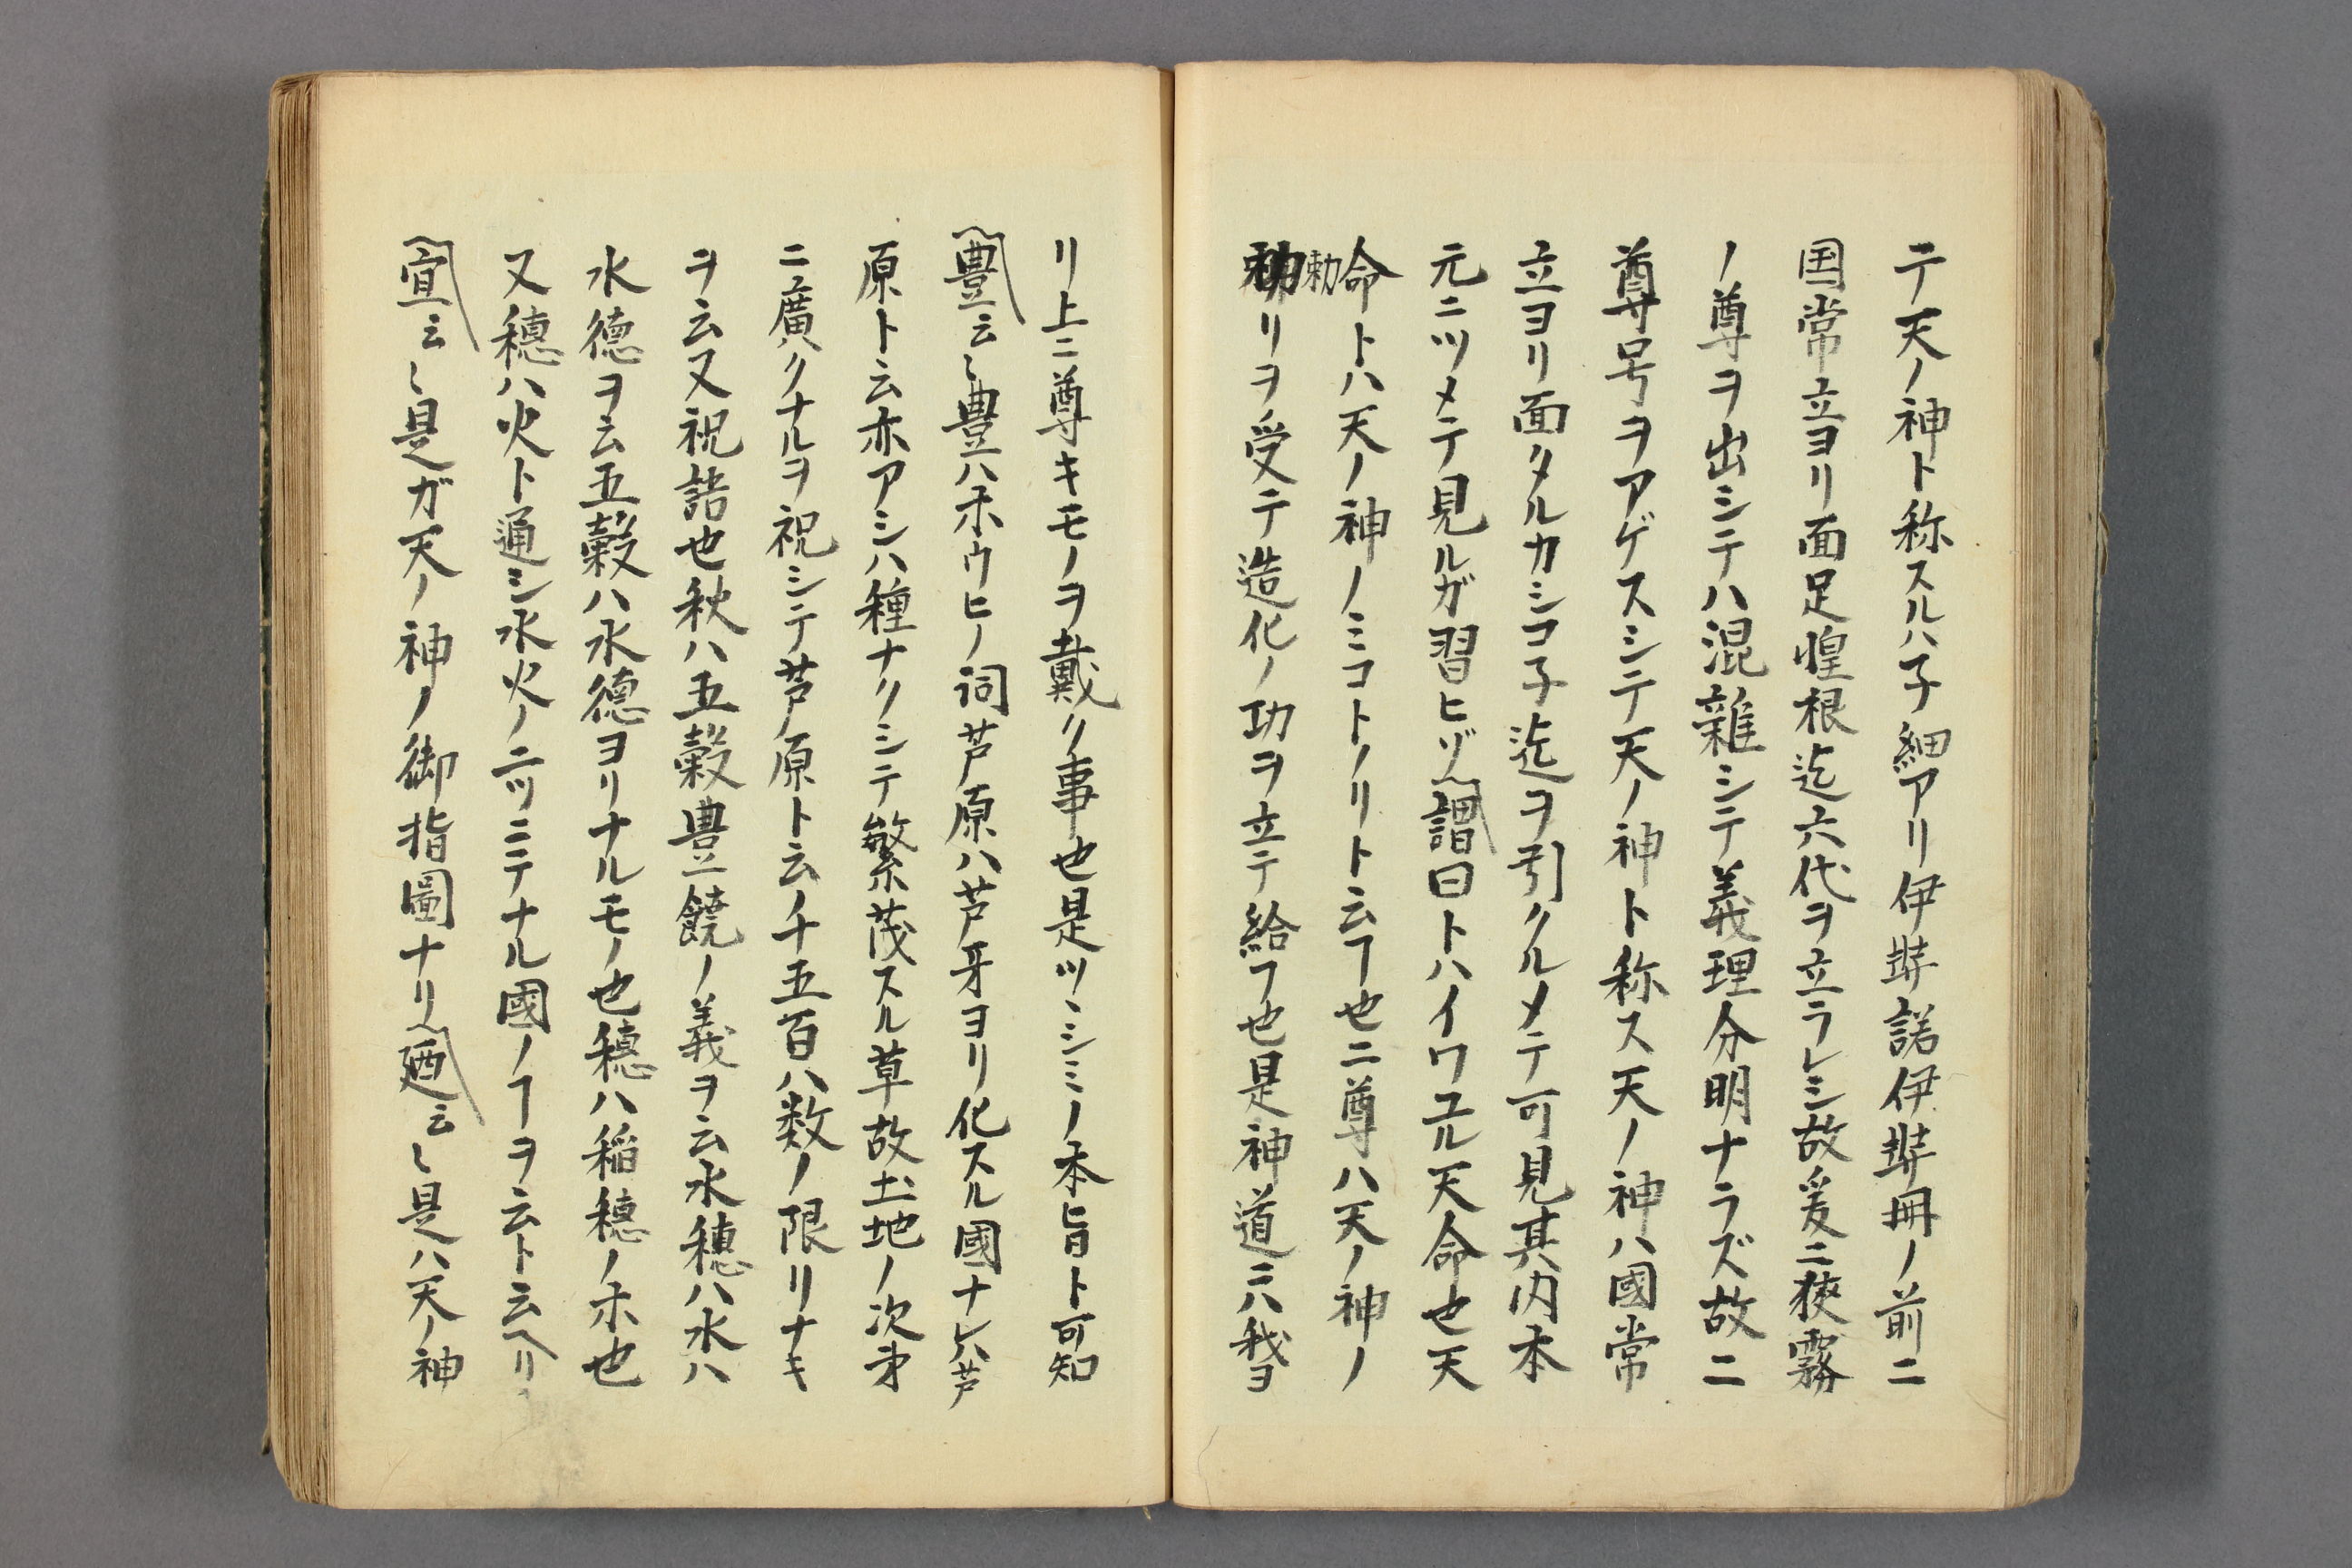 テ天ノ神ト称スルハ子細アリ伊弉諾伊弉冊ノ前ニ
国常立ヨリ面足惶根迄六代ヲ立ラレシ故爰ニ狭霧
ノ尊ヲ出シテハ混雑シテ義理分明ナラズ故ニ
尊号ヲアゲスシテ天ノ神ト称ス天ノ神ハ國常
立ヨリ面タルカシコ子迄ヲ引クルメテ可見其内本
元ニツメテ見ルガ習ヒゾ謂曰トハイワユル天命也天
命トハ天ノ神ノミコトノリト云ヿ也二尊ハ天ノ神ノ
勅
リヲ受テ造化ノ功ヲ立テ給フ也是神道ニハ我ヨ
リ上ニ尊キモノヲ戴ク事也是ツヽシミノ本旨ト可知
豊云〻豊ハホウヒノ詞芦原ハ芦牙ヨリ化スル國ナレハ芦
原ト云亦アシハ種ナクシテ繁茂スル草故土地ノ次才
ニ廣クナルヲ祝シテ芦原ト云ノ千五百ハ数ノ限リナキ
ヲ云又祝語也秋ハ五穀豊饒ノ義ヲ云水穂ハ水ハ
水徳ヲ云五穀ハ水徳ヨリナルモノ也穂ハ稲穂ノホ也
又穂ハ火ト通シ水火ノ二ツニテナル國ノヿヲ云ト云ヘリ
宜云〻是ガ天ノ神ノ御指圖ナリ廼云〻是ハ天ノ神